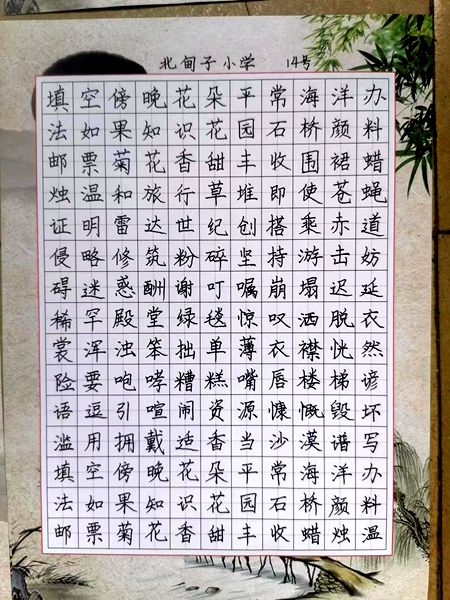 北甸子小学 14号
填空傍晚花朵平常海洋办
法如果知识花园石桥颜料
邮票菊花香甜丰收围裙蜡
烛温和旅行草堆即使苍蝇
证明雷达世纪创搭乘赤道
侵略修筑粉碎坚持游击妨
碍迷惑酬谢叮嘱崩塌迟延
稀罕殿堂绿毯惊叹洒脱衣
裳浑浊笨拙单薄衣襟恍然
险要咆哮糟糕嘴唇楼梯谚
语逗引喧闹资源慷慨毁坏
滥用拥戴适香当沙漠谱写
填空傍晚花朵平常海洋办
法如果知识花园石桥颜料
邮票菊花香甜丰收蜡烛温